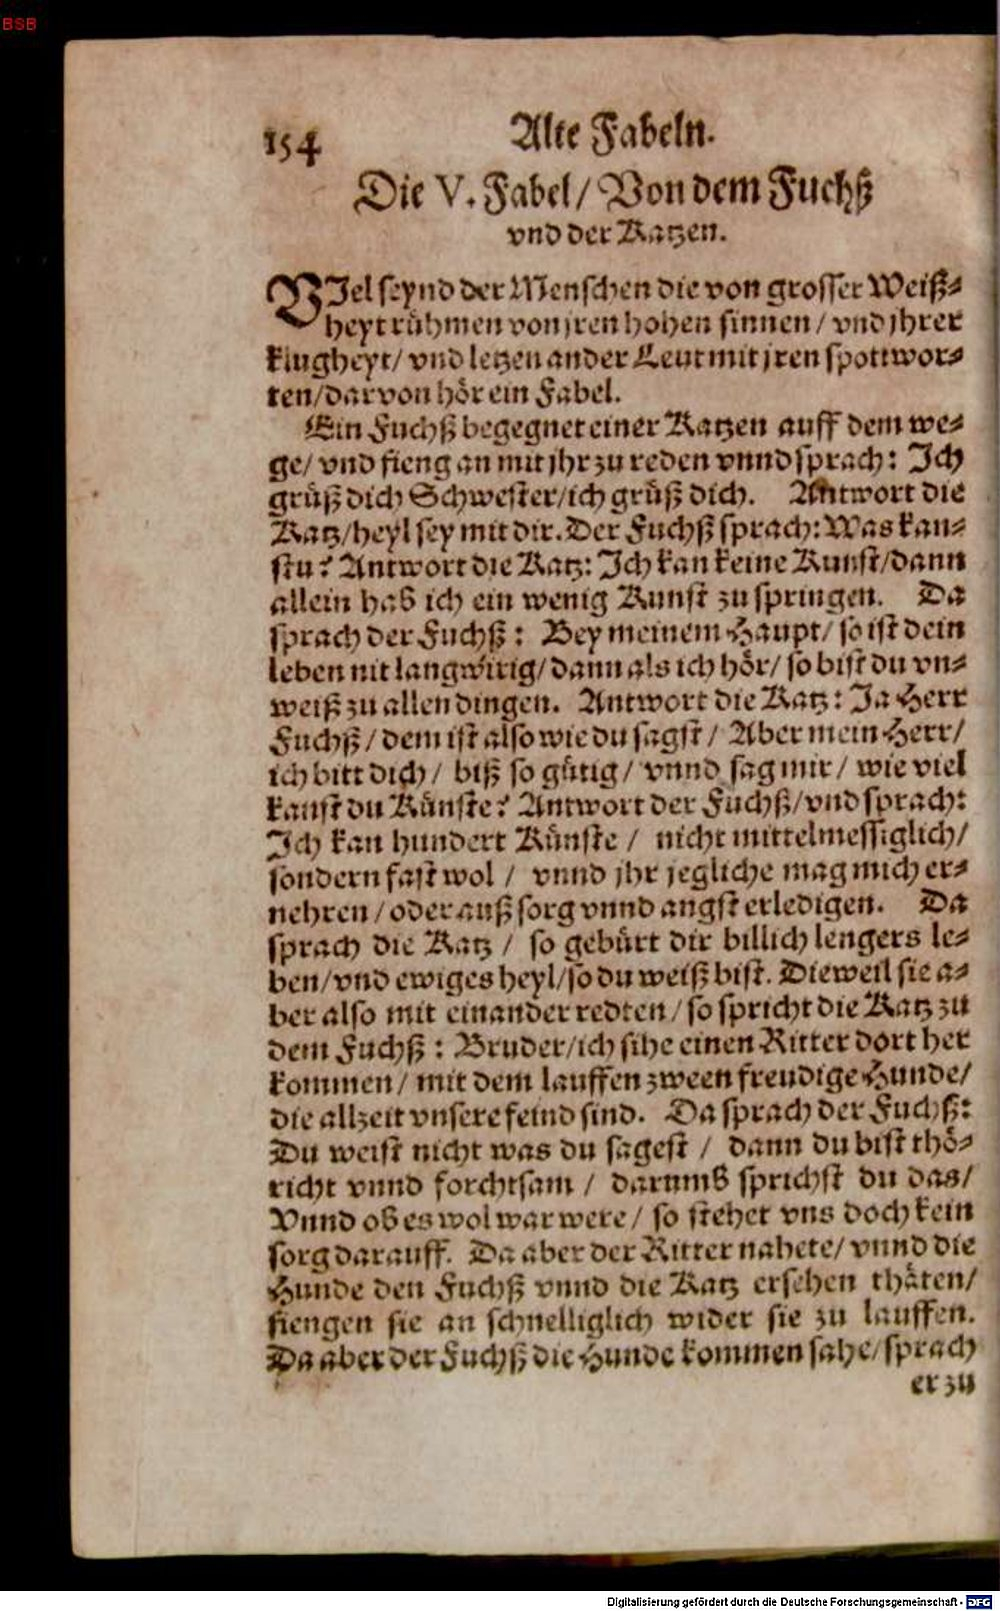 BSB
154
Alte Fabeln.
Die V. Fabel/ Von dem Fuchß
vnd der Katzen.
VIel seynd der Menschen die von grosser Weiß-
heyt rühmen von jren hohen sinnen / vnd jhrer
klugheyt/ vnd letzen ander Leut mit jren spottwor-
ten/darvon hör ein Fabel.
Ein Fuchß begegnet einer Katzen auff dem we-
ge/ vnd fieng an mit jhr zu reden vnnd sprach: Ich
grüß dich Schwester/ich grüß dich. Antwort die
Katz/heyl sey mit dir. Der Fuchß sprach: Was kan-
stu? Antwort die Katz: Ich kan keine Kunst/dann
allein hab ich ein wenig Kunst zu springen. Da
sprach der Fuchß: Bey meinem Haupt/ so ist dein
leben nit langwirig/ dann als ich hör/ so bist du vn-
weiß zu allen dingen. Antwort die Katz: Ja Herr
Fuchß/ dem ist also wie du sagst/ Aber mein Herr/
ich bitt dich/ biß so gütig/ vnnd sag mir/ wie viel
kanst du Künste? Antwort der Fuchß/vnd sprach:
Ich kan hundert Künste / nicht mittelmessiglich/
sondern fast wol / vnnd jhr jegliche mag mich er-
nehren / oder auß sorg vnnd angst erledigen. Da
sprach die Katz / so gebürt dir billich lengers le-
ben/vnd ewiges heyl/so du weiß bist. Dieweil sie a-
ber also mit einander redten / so spricht die Katz zu
dem Fuchß: Bruder/ich sihe einen Ritter dort her
kommen/ mit dem lauffen zween freudige Hunde/
die allzeit vnsere feind sind. Da sprach der Fuchß:
Du weist nicht was du sagest / dann du bist thö-
richt vnnd forchtsam / darumb sprichst du das/
Vnnd ob es wol war were/ so stehet vns doch kein
sorg darauff. Da aber der Ritter nahete/ vnnd die
Hunde den Fuchß vnnd die Katz ersehen thäten/
fiengen sie an schnelliglich wider sie zu lauffen.
Da aber der Fuchß die Hunde kommen sahe/sprach
er zu
Digitalisierung gefördert durch die Deutsche Forschungsgemeinschaft - DFG